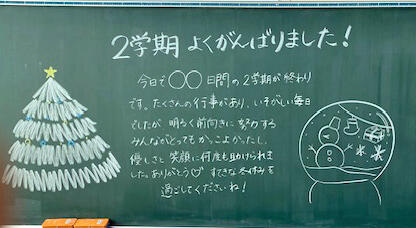 2学期 よくがんばりました！
今日で〇〇日間の2学期が終わり
です。たくさんの行事があり、いそがしい毎日
でしたが 明るく前向きに 努力する
みんながとってもかっこよかったし、
優しさと 笑顔に何度も助けられま
した。ありがとう♡ すてきな冬休みを
過ごしてくださいね！